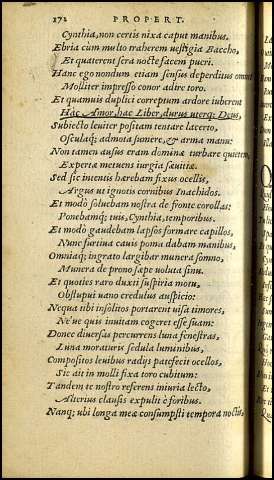 172 PROPERT.
Cynthia, non certis nixa caput manibus.
Ebria cum multo traherem uestigia Baccho,
Et quaterent sera nocte facem pueri.
Hanc ego nondum etiam sensus deperditus omnes
Molliter impresso conor adire toro.
Et quamuis duplici correptum ardore iuberent
Hac Amor, hac Liber, durus uterq; Deus,
Subiecto leuiter positam tentare lacerto,
Osculaq; admota sumere, & arma manu:
Non tamen ausus eram dominæ turbare quietem,
Expertæ metuens iurgia sæuitiæ.
Sed sic intentis hærebam fixus ocellis,
Argus ut ignotis cornibus Inachidos.
Et modò soluebam nostra de fronte corollas:
Ponebamq; tuis, Cynthia, temporibus.
Et modo gaudebam lapsos formare capillos,
Nunc furtiua cauis poma dabam manibus,
Omniaq; ingrato largibar munera somno,
Munera de prono sæpe uoluta sinu.
Et quoties raro duxti suspiria motu,
Obstupui uano credulus auspicio:
Nequa tibi insolitos portarent uisa timores,
Ne'ue quis inuitam cogeret esse suam:
Donec diuersas percurrens luna fenestras,
Luna moraturis sedula luminibus,
Compositos leuibus radijs patefecit ocellos,
Sic ait in molli fixa toro cubitum:
Tandem te nostro referens iniuria lecto,
Alterius clausis expulit è foribus.
Nanq; ubi longa meæ consumpsti tempora noctis,